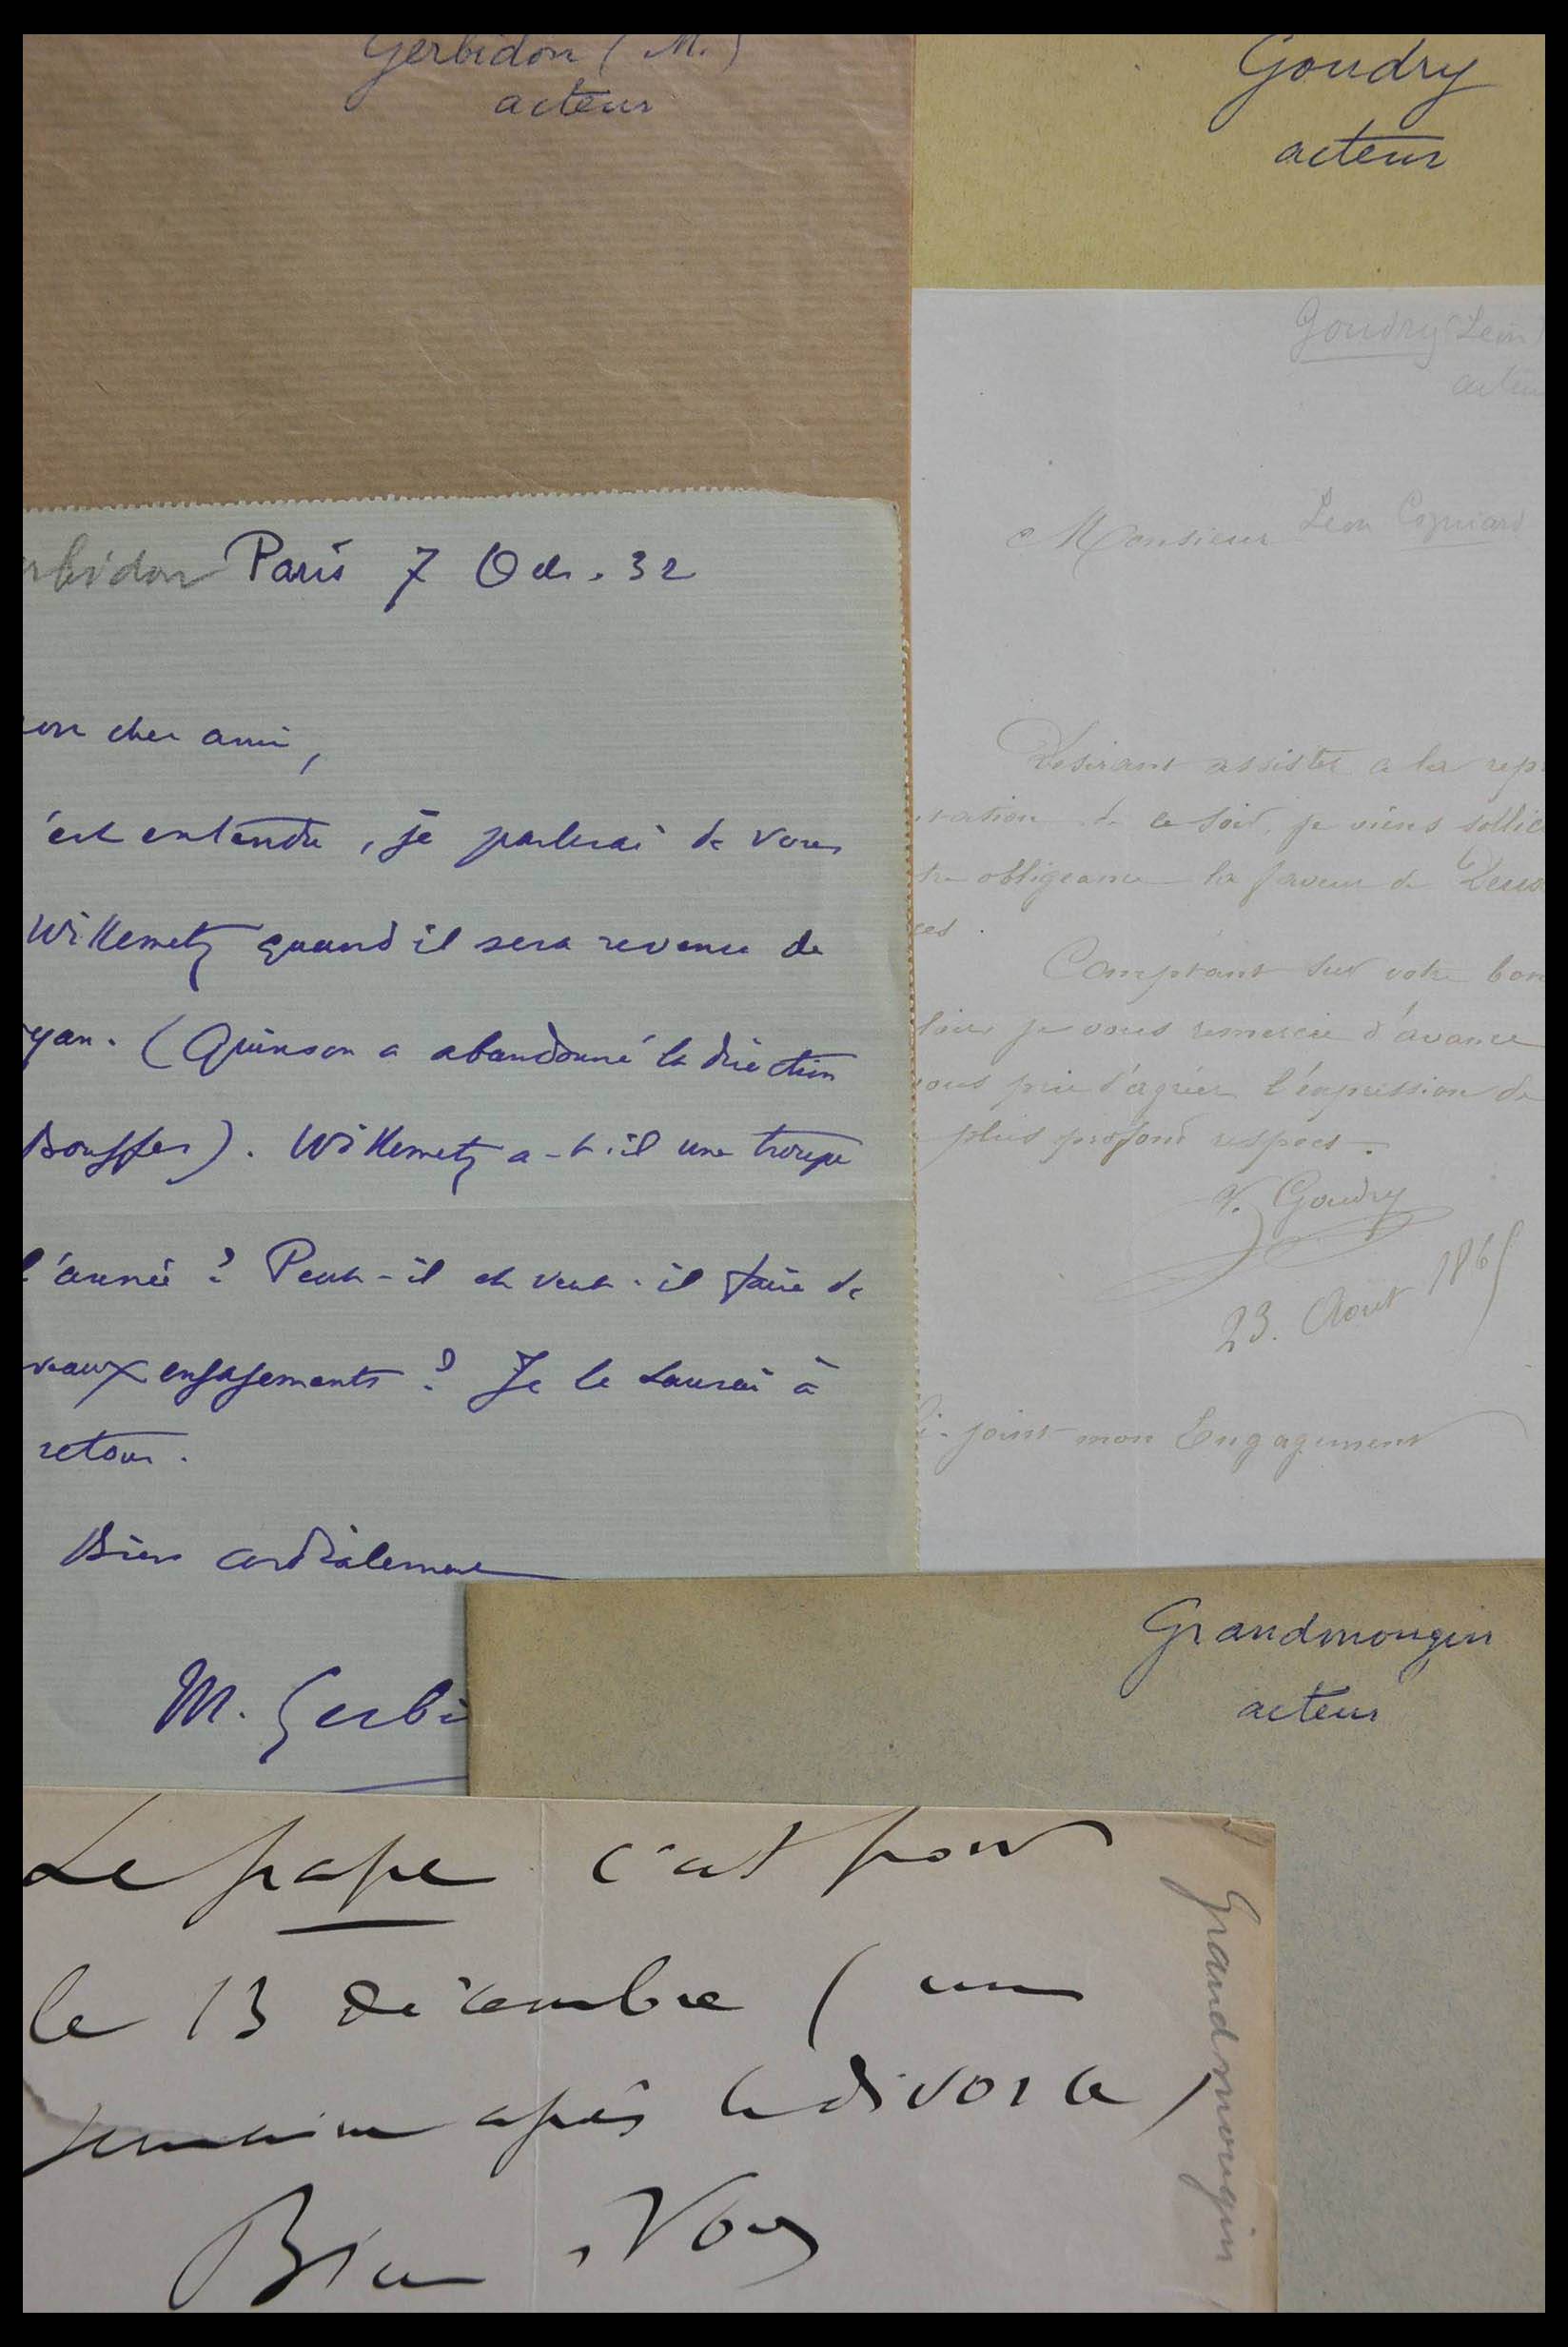 Gerbidon (M.)
acteur
rbidon Paris 7 Oct. 32
on cher ami,
'est entendu, je parlerai de vous
Willemetz quand il sera revenu de
yan. (Quinson a abandonné la direction
Bouffes). Willemetz a-t-il une troupe
l'année ? Peut-il et veut-il faire de
veaux engagements ? Je le saurai à
retour.
Bien cordialement
M. Gerbi
Goudry
acteur
Goudry (Léon)
acteu
Monsieur Léon Cogniard
Désirant assister a la rep
tation de ce soir, je viens sollic
tre obligeance la faveur de Deux
ces.
Comptant sur votre bon
loir je vous remercie d'avance
vous prie d'agréer l'expression de
plus profond respect.
Goudry
23. Aout 186
i-joint mon Engagement
Grandmougin
acteur
Le pape c'est pour
le 13 décembre (une
semaine après le divorce)
Bien à Vous
Grandmougin